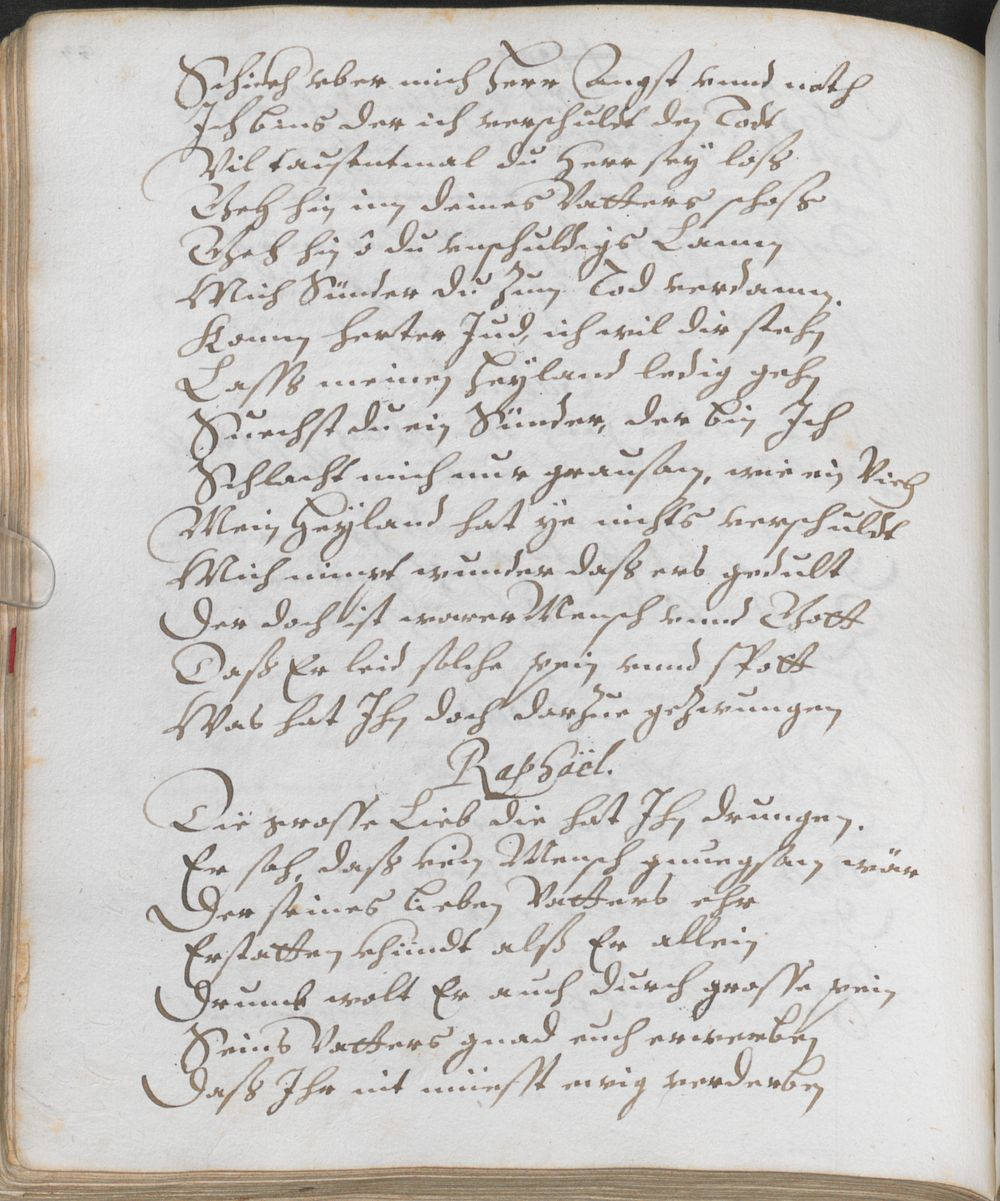 Schickh vber mich Herr Angst vnnd noth
Ich bins der ich verschuldt den Todt
Vil tausentmal du Herr sey loß
Geh hin inn deines Vatters schoß
Geh hin ô du vnschuldigs Lamm
Mich Sünder du zum Tod verdamm.
Komm herter Jud, ich wil dir stehn
Lasß meinen Heyland ledig gehn
Suechst du ein Sünder, der bin Ich
Schlacht mich nur grausam, wie ein Vieh
Mein Heyland hat ye nichts verschuldt
Mich nimpt wunder daß ers gedult
Der doch ist warer Mensch vnnd Gott
Daß Er leid solche pein vnnd spott
Was hat Ihn doch darzue gezwungen
Raphaël.
Die grosse Lieb die hat Ihn drungen.
Er sah, daß kein Mensch gnuegsam wär
Der seines lieben Vatters ehr
Erstatten khündt alß Er allein
Drumb wolt Er auch durch grosse pein
Seins Vatters gnad euch erwerben
Daß Ihr nit müesst ewig verderben